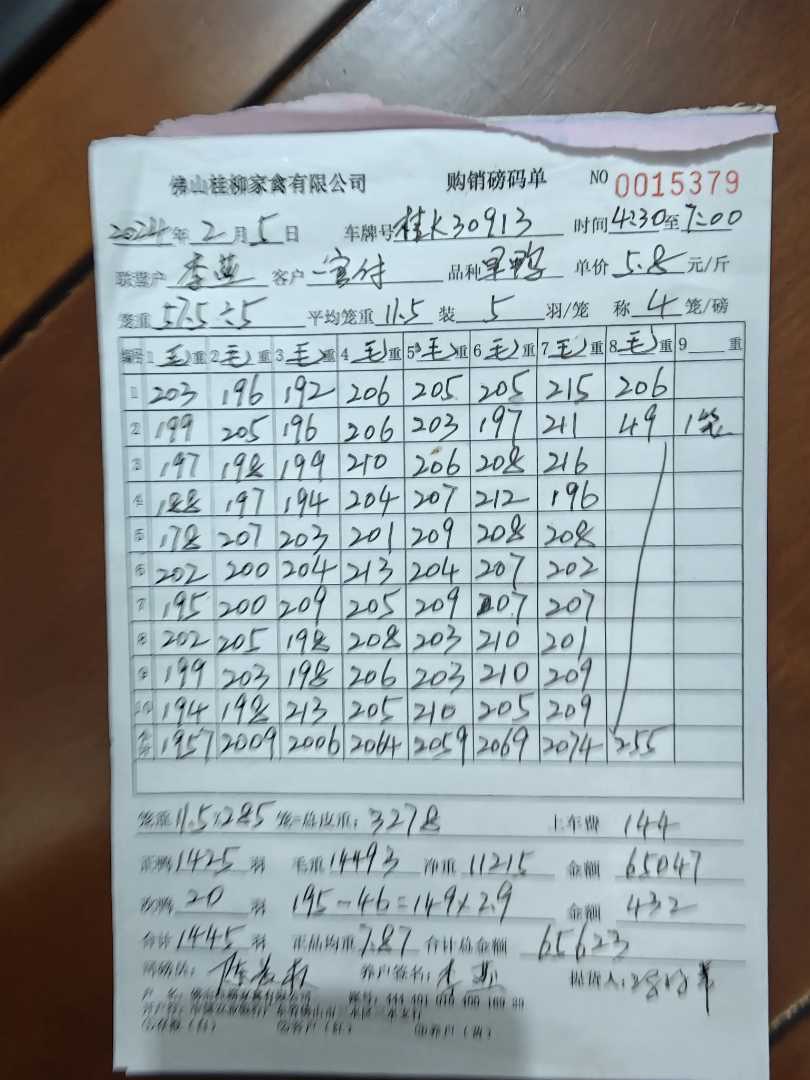 佛山桂柳家禽有限公司 购销磅码单 NO 0015379
2024年2月5日 车牌号桂K30913 时间4:30至7:00
联盟户李燕 客户 品种旱鸭 单价5.8元/斤
笼重57.5÷5 平均笼重11.5 装5羽/笼 称4笼/磅
编号 1毛重 2毛重 3毛重 4毛重 5毛重 6毛重 7毛重 8毛重 9重
① 203 196 192 206 205 205 215 206
② 199 205 196 206 203 197 211 49 1笼
③ 197 198 199 210 206 208 216
④ 188 197 194 204 207 212 196
⑤ 178 207 203 201 209 208 208
⑥ 202 200 204 213 204 207 202
⑦ 195 200 209 205 209 207 207
⑧ 202 205 198 208 203 210 201
⑨ 199 203 198 206 203 210 209
⑩ 194 198 213 205 210 205 209
1957 2009 2006 2064 2059 2069 2074 255
笼重11.5×285笼=总皮重:3278 上车费144
正鸭1425羽 毛重14493 净重11215 金额65047
次鸭20羽 195-46=149×2.9 金额432
合计1445羽 正品均重7.87 合计总金额65623
司磅员: 养户签名:李燕 提货人:
户名:佛山桂柳家禽有限公司